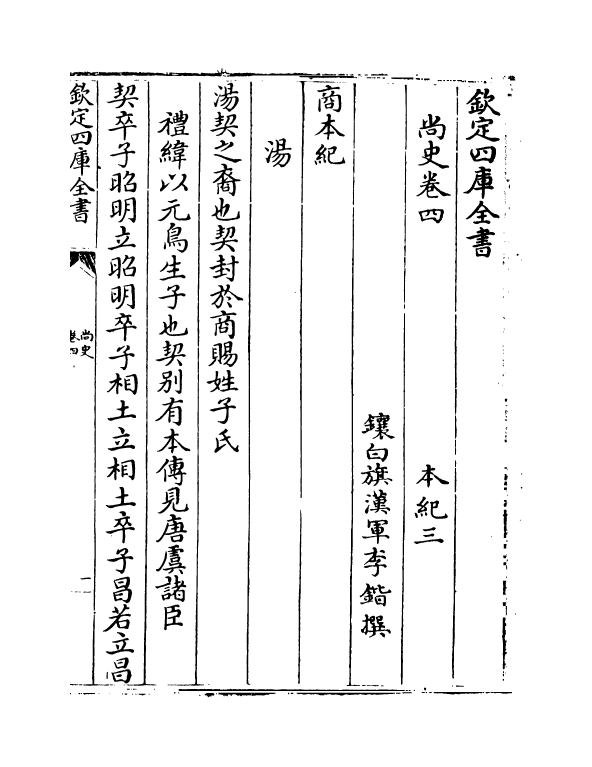 欽定四庫全書
尚史卷四　　　本紀三
鑲白旗漢軍李鍇撰
商本紀
湯
湯契之裔也契封於商賜姓子氏
禮緯以元鳥生子也契別有本傳見唐虞諸臣
契卒子昭明立昭明卒子相土立相土卒子昌若立昌
欽定四庫全書
尚史
卷四
一